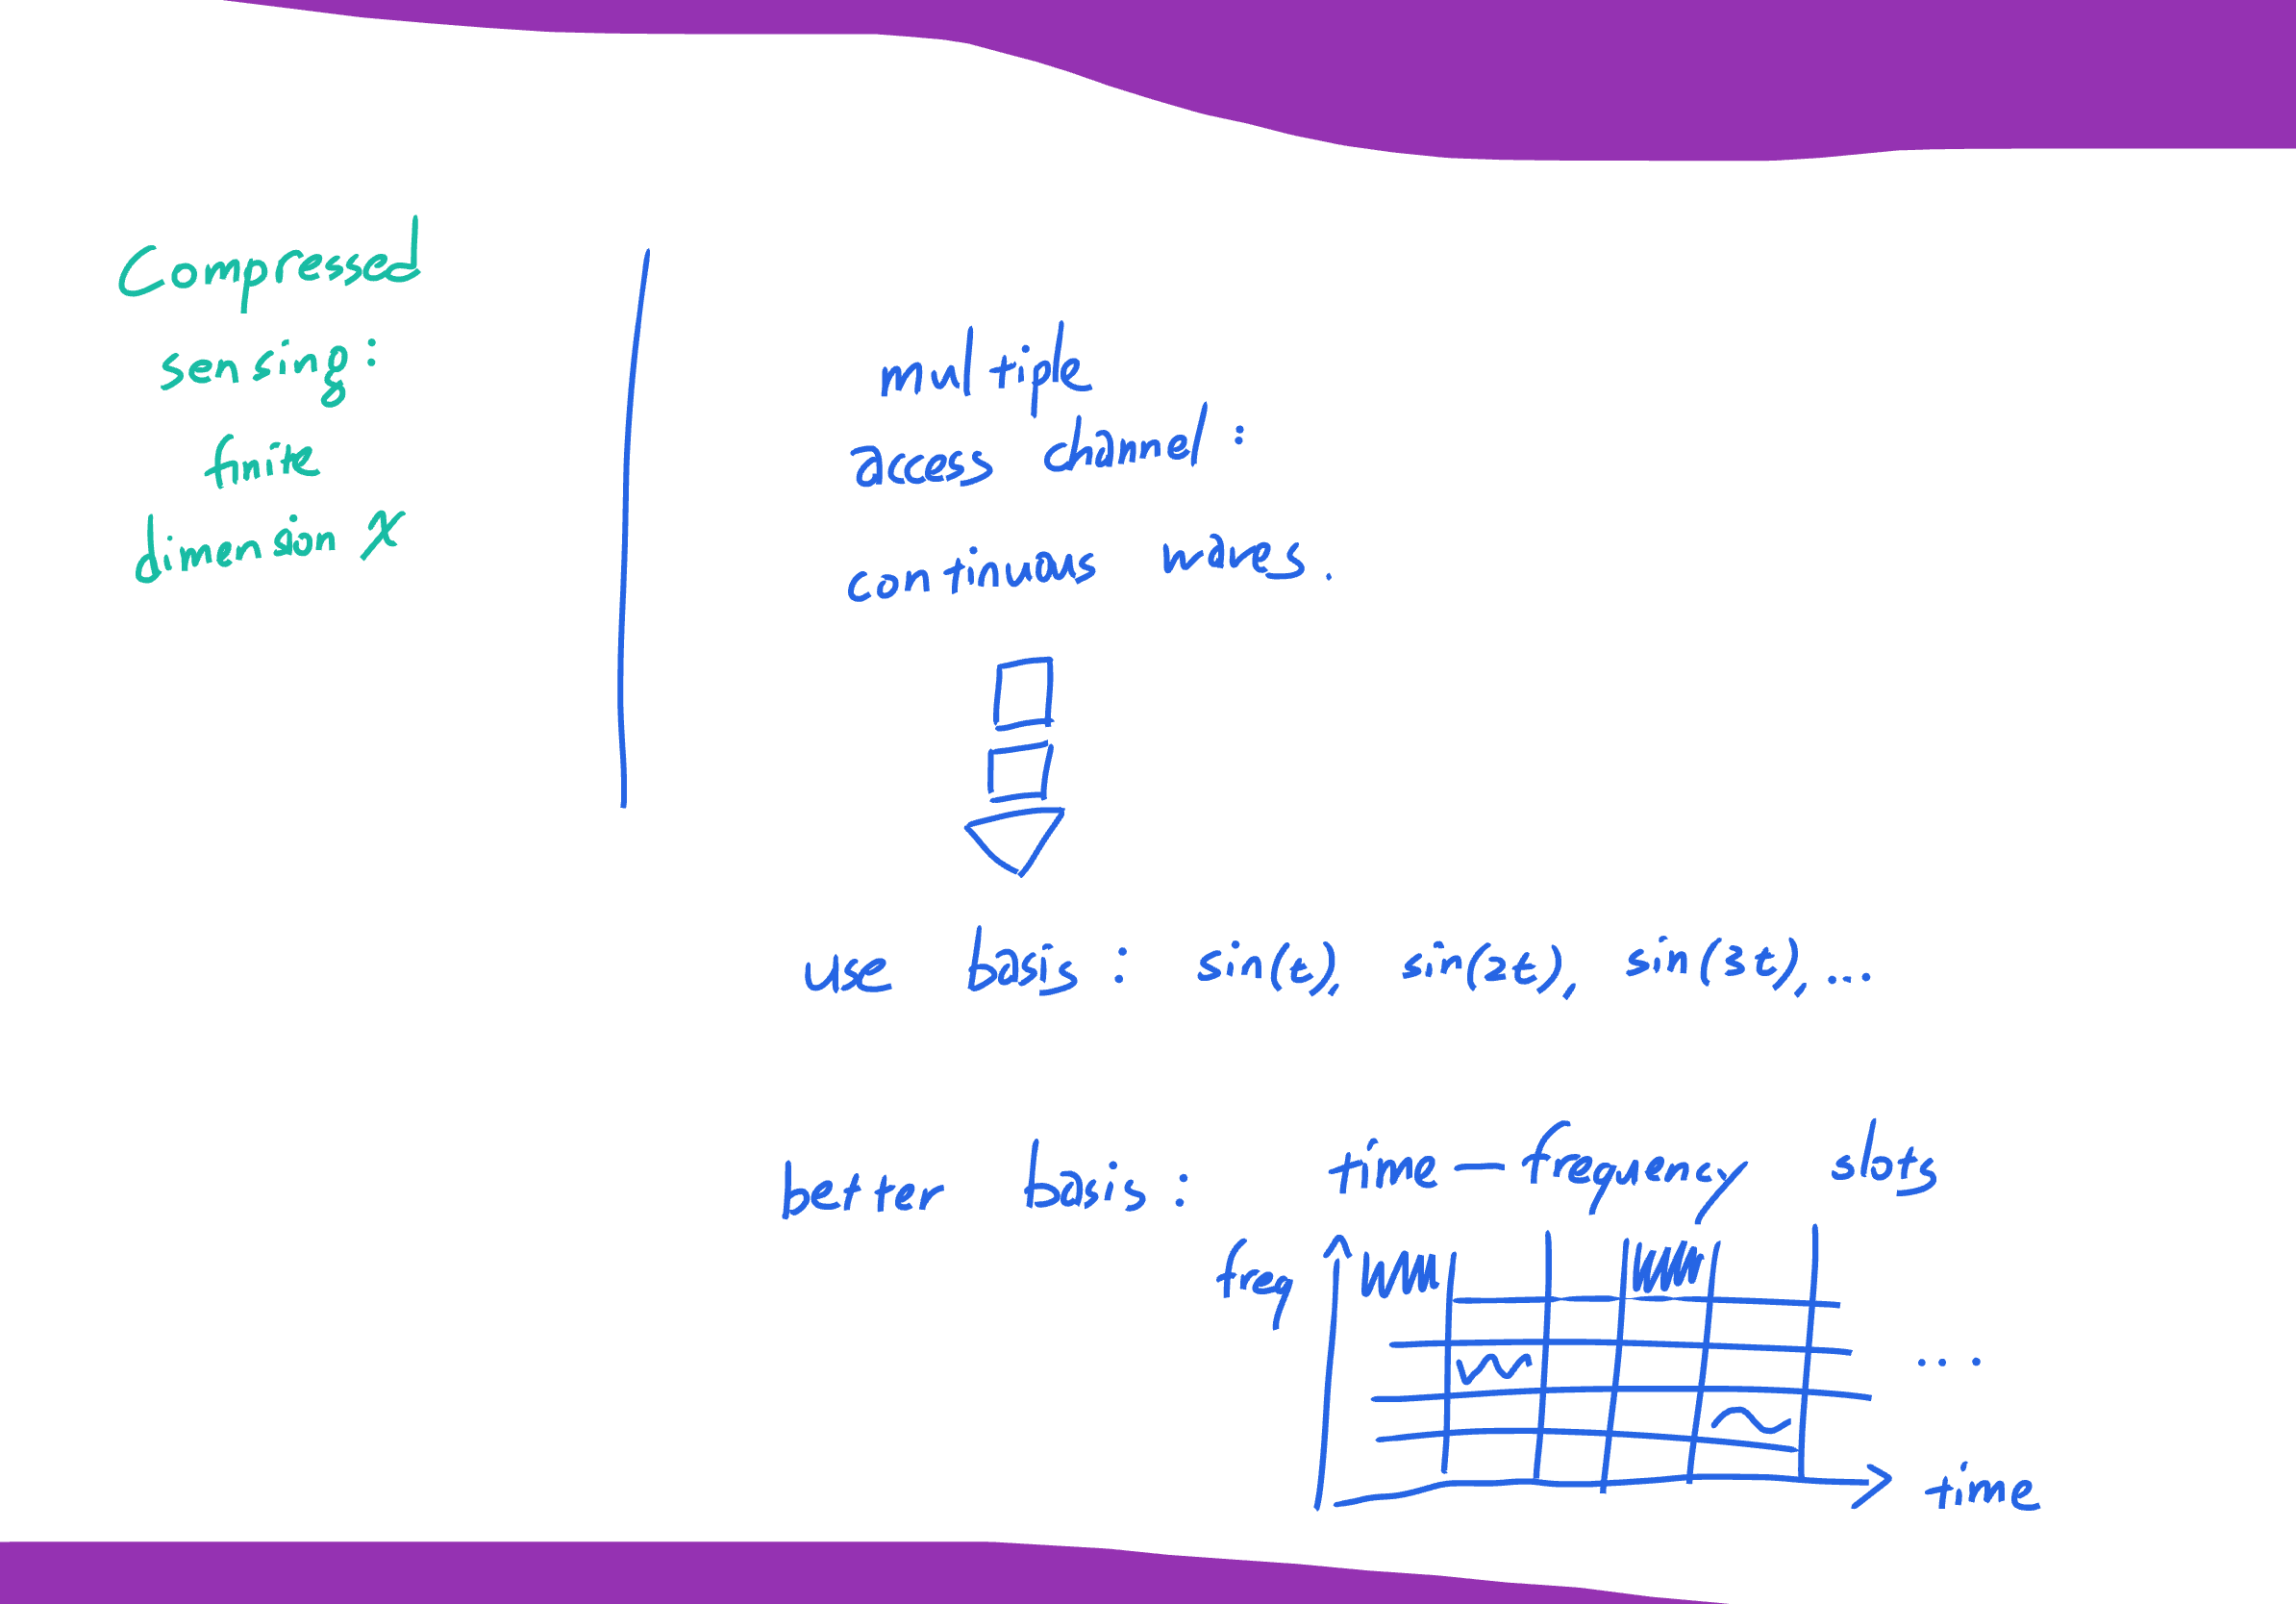 Compressed
sensing:
finite
dimension x
multiple
access channel:
continuous waves.
use basis: sin(t), sin(2t), sin(3t), ...
better basis: time-frequency slots
freq
...
time